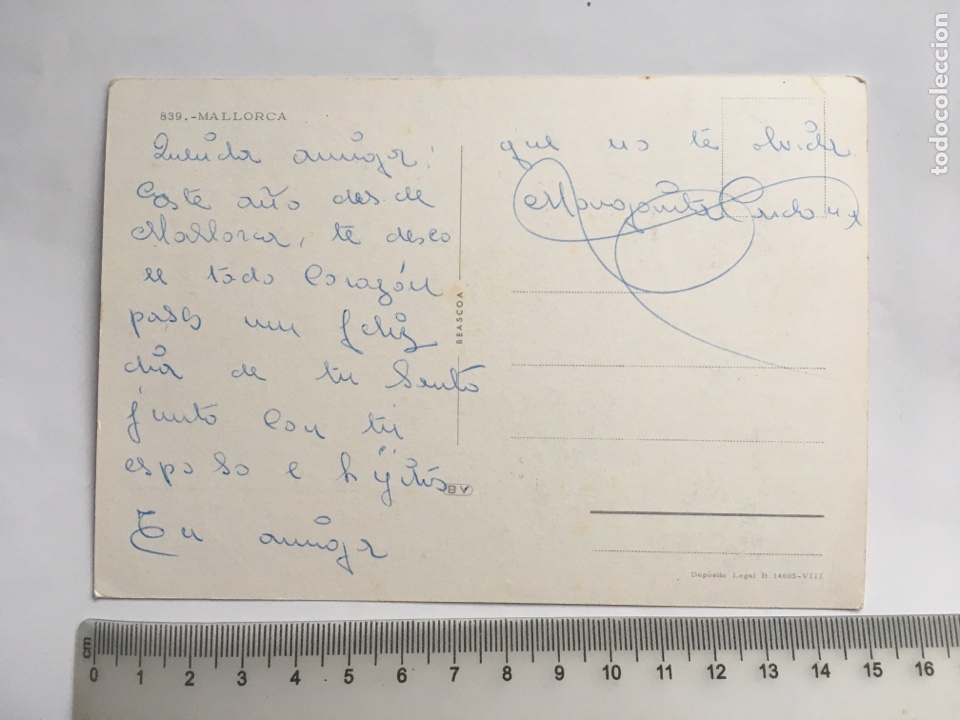 839.-MALLORCA
Querida amiga:
Este año desde
Mallorca, te deseo
de todo Corazón
pases un feliz
día de tu Santo
junto con tu
esposo e hijitos
Tu amiga
que no te olvida
Margarita
BEASCOA
BV
Depósito Legal B. 14665-VIII
todocoleccion
cm
0 1 2 3 4 5 6 7 8 9 10 11 12 13 14 15 16